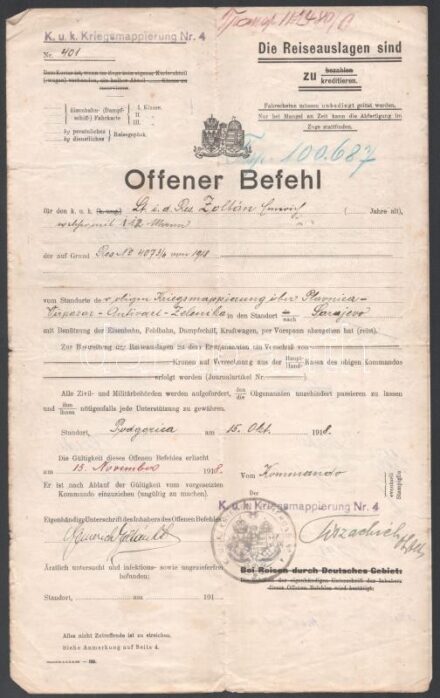 K. u. k. Kriegsmappierung Nr. 4
Nr. 401
Die Reiseauslagen sind
zu bezahlen
kreditieren.
Fahrscheine müssen unbedingt gelöst werden.
Nur bei Mangel an Zeit kann die Abfertigung im
Zuge stattfinden.
Eisenbahn- (Dampf-
schiff-) Fahrkarte
I. Klasse.
II. „
III. „
kg persönliches
kg dienstliches
Reisegepäck.
100.687
Offener Befehl
für den k. u. k. (k. ung.) Lt. i. d. Res. Zoltán Emerich ( Jahre alt),
der auf Grund Res. No 4073/4 von 1918
vom Standorte der obigen Kriegsmappierung über Plavnica-
Virpazar-Antivari-Zelenika in den Standort in Sarajevo
nach
mit Benützung der Eisenbahn, Feldbahn, Dampfschiff, Kraftwagen, per Vorspann abzugehen hat (reist).
Zur Bestreitung der Reiseauslagen ist dem Ebengenannten ein Vorschuß von
Kronen auf Verrechnung aus der Haupt- Kassa des obigen Kommandos
Hand-
erfolgt worden (Journalartikel Nr. ).
Alle Zivil- und Militärbehörden werden aufgefordert, den Obgenannten ungehindert passieren zu lassen
die
und ihm nötigenfalls jede Unterstützung zu gewähren.
ihnen
Standort, Podgorica am 15. Okt. 1918.
Die Gültigkeit dieses Offenen Befehles erlischt
am 15. November 1918.
Er ist nach Ablauf der Gültigkeit vom vorgesetzten
Kommando einzuziehen (ungültig zu machen).
Vom Kommando
Der
eventuell
Stampiglie
K. u. k. Kriegsmappierung Nr. 4
Eigenhändige Unterschrift des Inhabers des Offenen Befehles:
Ärztlich untersucht und infektions- sowie ungezieferfrei
befunden:
Standort, am 191
Bei Reisen durch Deutsches Gebiet:
der eigenhändigen Unterschrift des Inhabers
dieses Offenen Befehles wird bestätigt:
Alles nicht Zutreffende ist zu streichen.
Siehe Anmerkung auf Seite 4.